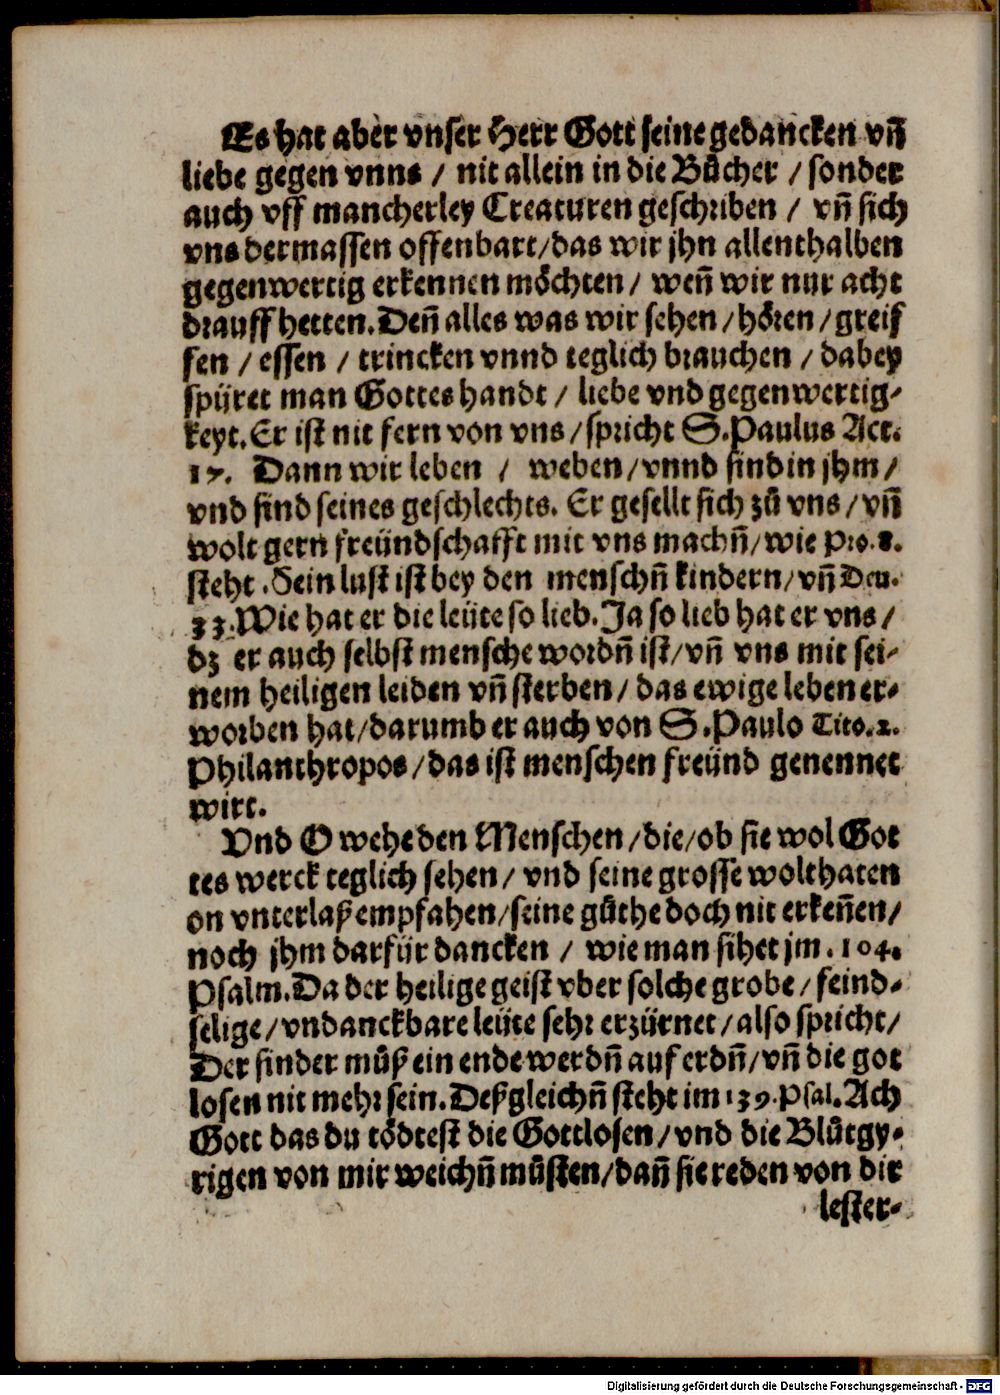 Es hat aber vnser Herr Gott seine gedancken vñ
liebe gegen vnns / nit allein in die Bůcher / sonder
auch vff mancherley Creaturen geschriben / vñ sich
vns dermassen offenbart/das wir jhn allenthalben
gegenwertig erkennen möchten / weñ wir nur acht
drauff hetten. Deñ alles was wir sehen /hören /greif
fen / essen / trincken vnnd teglich brauchen / dabey
spüret man Gottes handt / liebe vnd gegenwertig-
keyt. Er ist nit fern von vns / spricht S. Paulus Act.
17. Dann wir leben / weben/vnnd sind in jhm /
vnd sind seines geschlechts. Er gesellt sich zů vns / vñ
wolt gern freündschafft mit vns machñ/wie Pro. 8.
steht . Sein lust ist bey den menschñ kindern/vñ Deu.
33. Wie hat er die leüte so lieb. Ja so lieb hat er vns /
dz er auch selbst mensche wordñ ist/vñ vns mit sei-
nem heiligen leiden vñ sterben / das ewige leben er-
worben hat/darumb er auch von S. Paulo Tito. 2.
Philanthropos /das ist menschen freünd genennet
wirt.
Vnd O wehe den Menschen /die/ob sie wol Got
tes werck teglich sehen / vnd seine grosse wolthaten
on vnterlaß empfahen/seine gůthe doch nit erkeñen/
noch jhm darfür dancken / wie man sihet jm . 104.
Psalm. Da der heilige geist vber solche grobe / feind-
selige /vndanckbare leüte sehr erzürnet / also spricht/
Der sinder můß ein ende werdñ auf erdñ/vñ die got
losen nit mehr sein. Deßgleichñ steht im 139. Psal. Ach
Gott das du tödtest die Gottlosen / vnd die Blůtgy-
rigen von mir weichñ můsten/dañ sie reden von dir
lester-
Digitalisierung gefördert durch die Deutsche Forschungsgemeinschaft - DFG